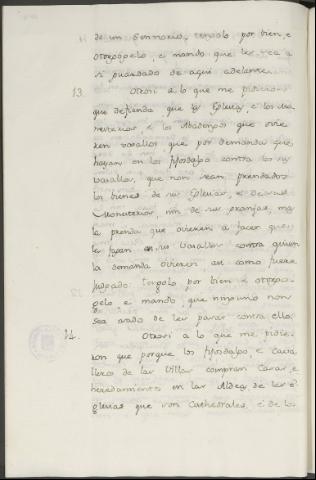 de un Sennorio, tengolo por bien, e
otorgogelo, e mando que les sea a
si guardado de aqui adelante.
13. Otrosi a lo que me pidieron
que defienda que las Eglesias, e los Mo
nesterios, e los Abadengos que ovie
ren vasallos que por demanda que
hayan en los fijosdalgo contra los sus
vasallos, que non sean prendados
los bienes de sus Eglesias, e de sus
Monesterios, nin de sus granjas, mas
la prenda que ovieren a facer que
la fagan en sus Vasallos contra quien
la demanda ovieren, asi como fuere
judgado. Tengolo por bien e otorgo
gelo e mando, que ninguno non
sea osado de ir, pasar contra ello.
14. Otrosi a lo que me pidie
ron que porque los fijosdalgo e cava
lleros de las Villas compran Casas, e
heredamientos en las Aldeas de las E
glesias que son Cathedrales, e de los